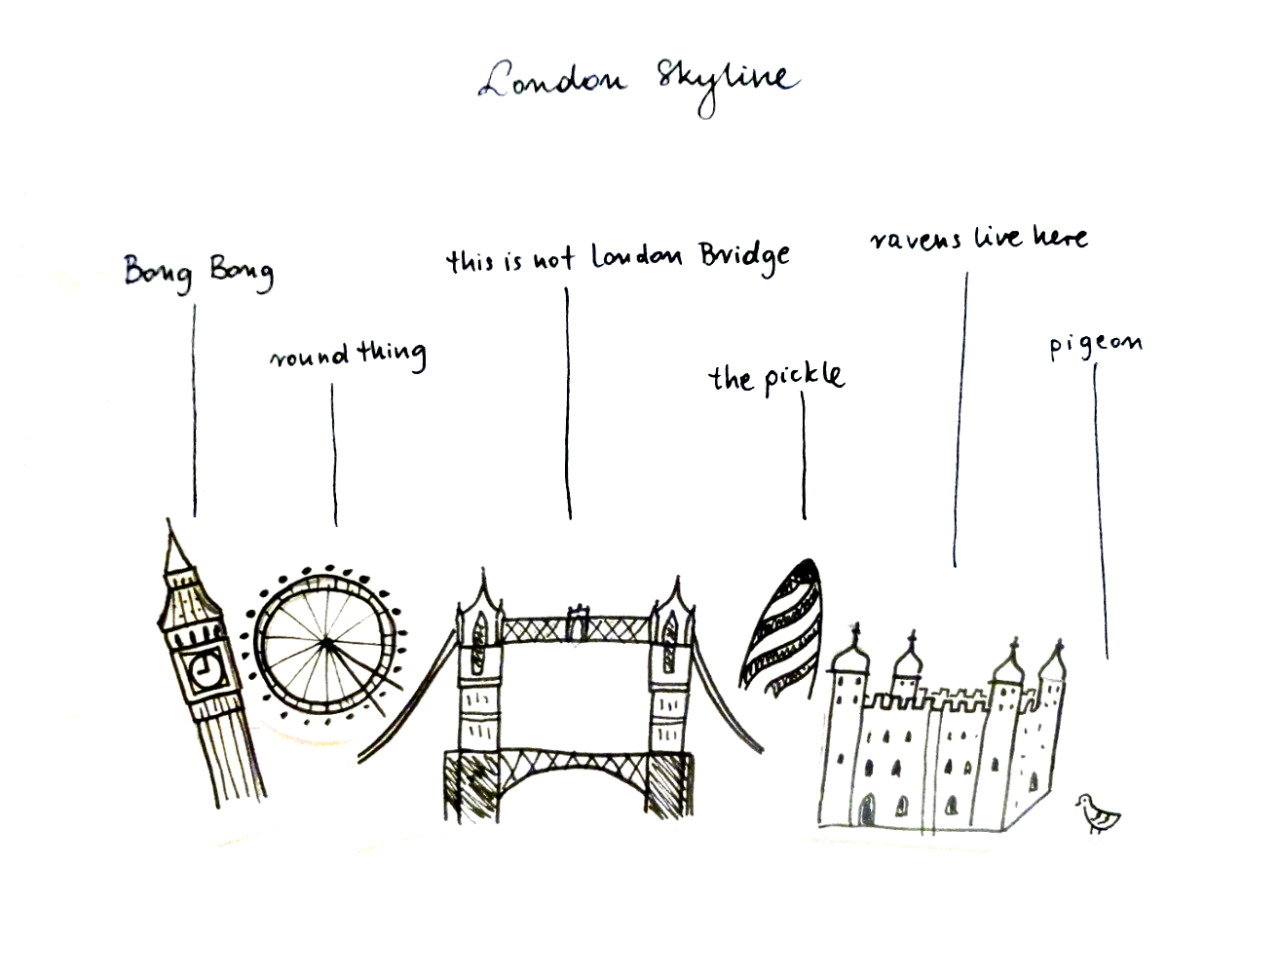 London Skyline
Bong Bong
round thing
this is not London Bridge
the pickle
ravens live here
pigeon